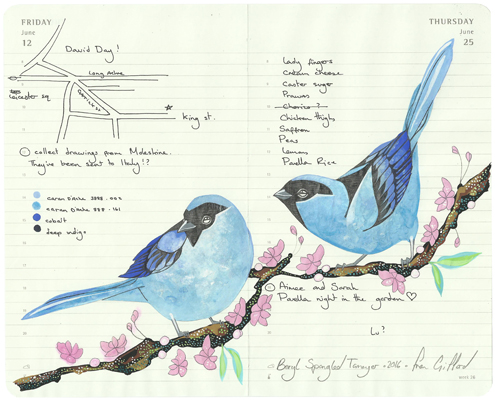 FRIDAY
June
12
David Day!
Long Acre
Leicester sq
Garrick st
King st.
collect drawings from Moleskine.
They've been sent to Italy!?
caran d'ache
caran d'ache
cobalt
deep indigo
THURSDAY
June
25
Lady fingers
Cream cheese
Caster sugar
Prawns
Chorizo ?
Chicken thighs
Saffron
Peas
Lemons
Paella Rice
Aimee and Sarah
Paella night in the garden ♡
Lu?
Beryl Spangled Tanager - 2016 - Fran Giffard
week 26